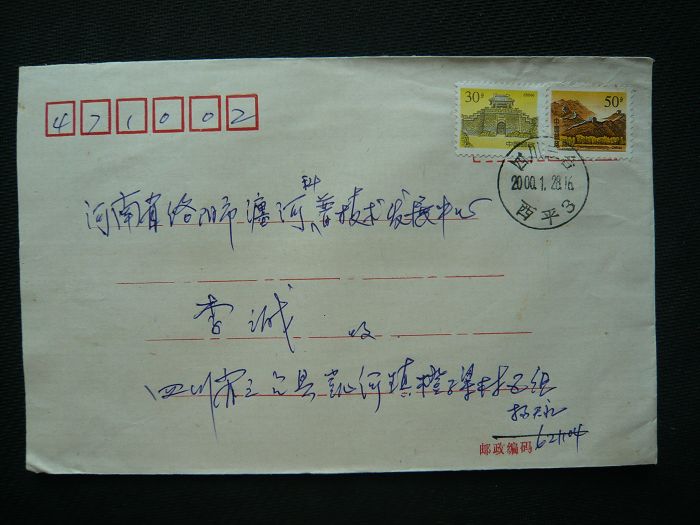 471002
30分
50分
四川三台
2000.1.28.16
西平3
科
河南省洛阳市瀍河普技术发展中心
李诚 收
四川省三台县凯河镇橙子梁村5组
邮政编码 621104